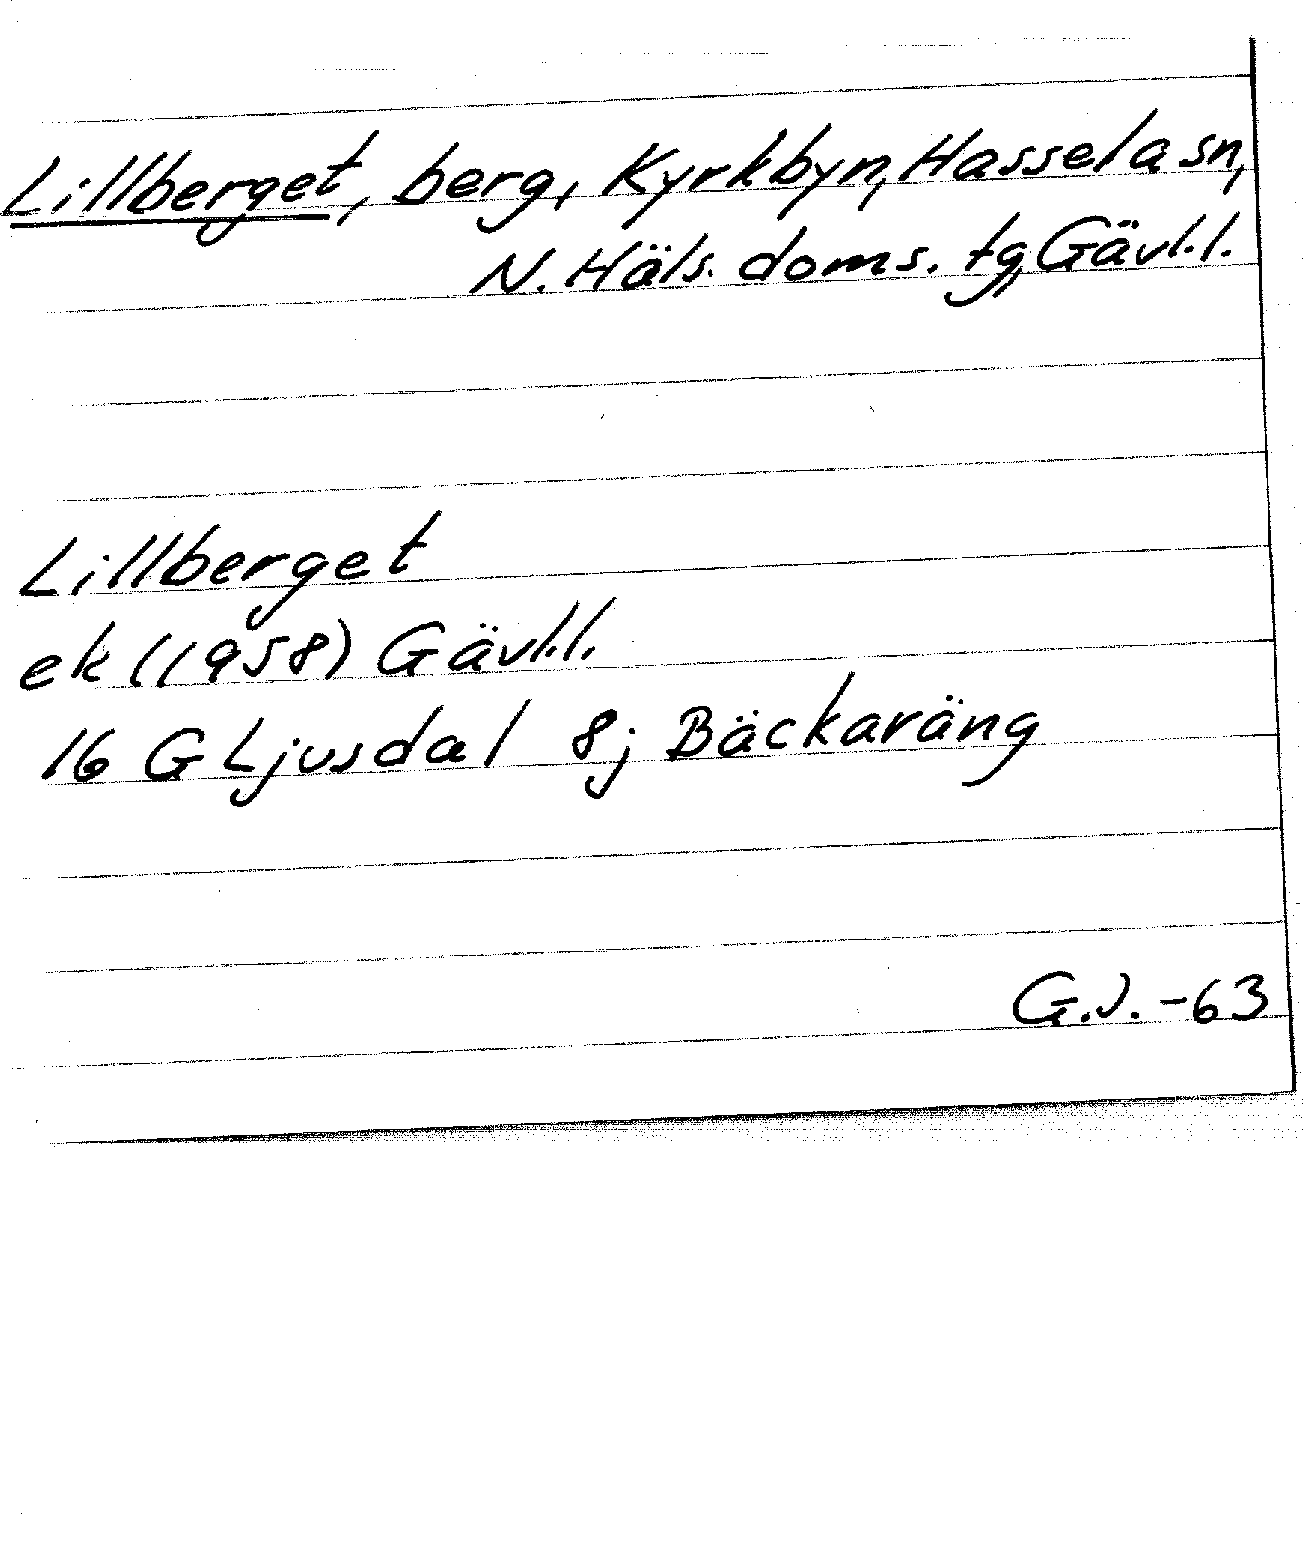 Lillberget, berg, Kyrkbyn, Hassela sn,
N. Häls. doms. tg, Gävl.l.
Lillberget
ek (1958) Gävl.l.
16 G Ljusdal 8j Bäckaräng
G.J. -63